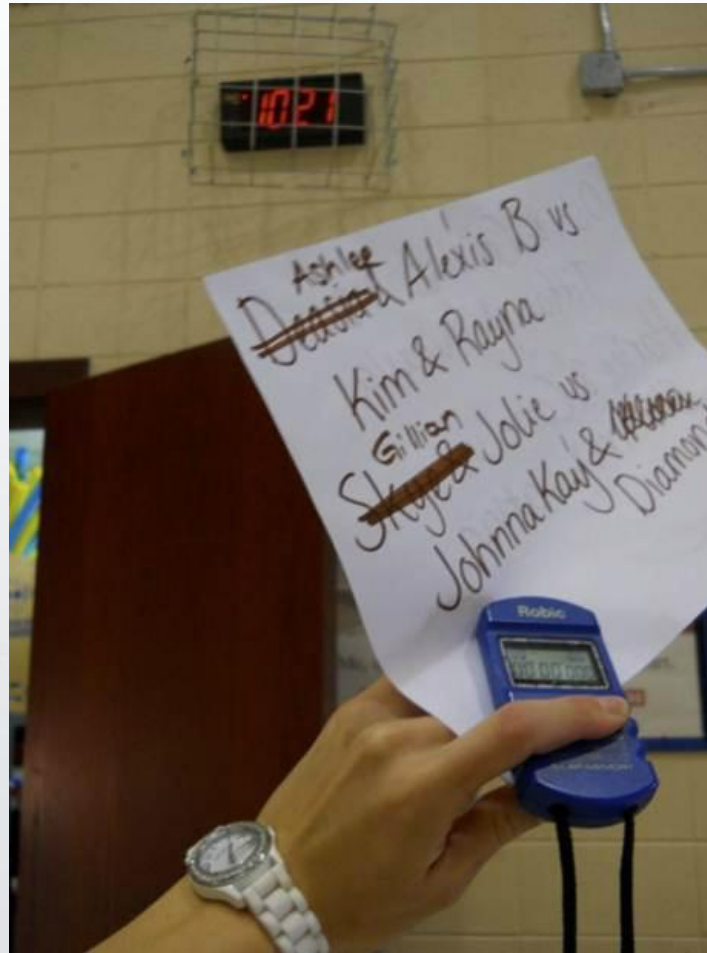 10:21
Ashlee
Deasia & Alexis B vs
Kim & Rayna
Gillian
Skye & Jolie vs
Johnna Kay &
Diamond
Robic
00:00.000